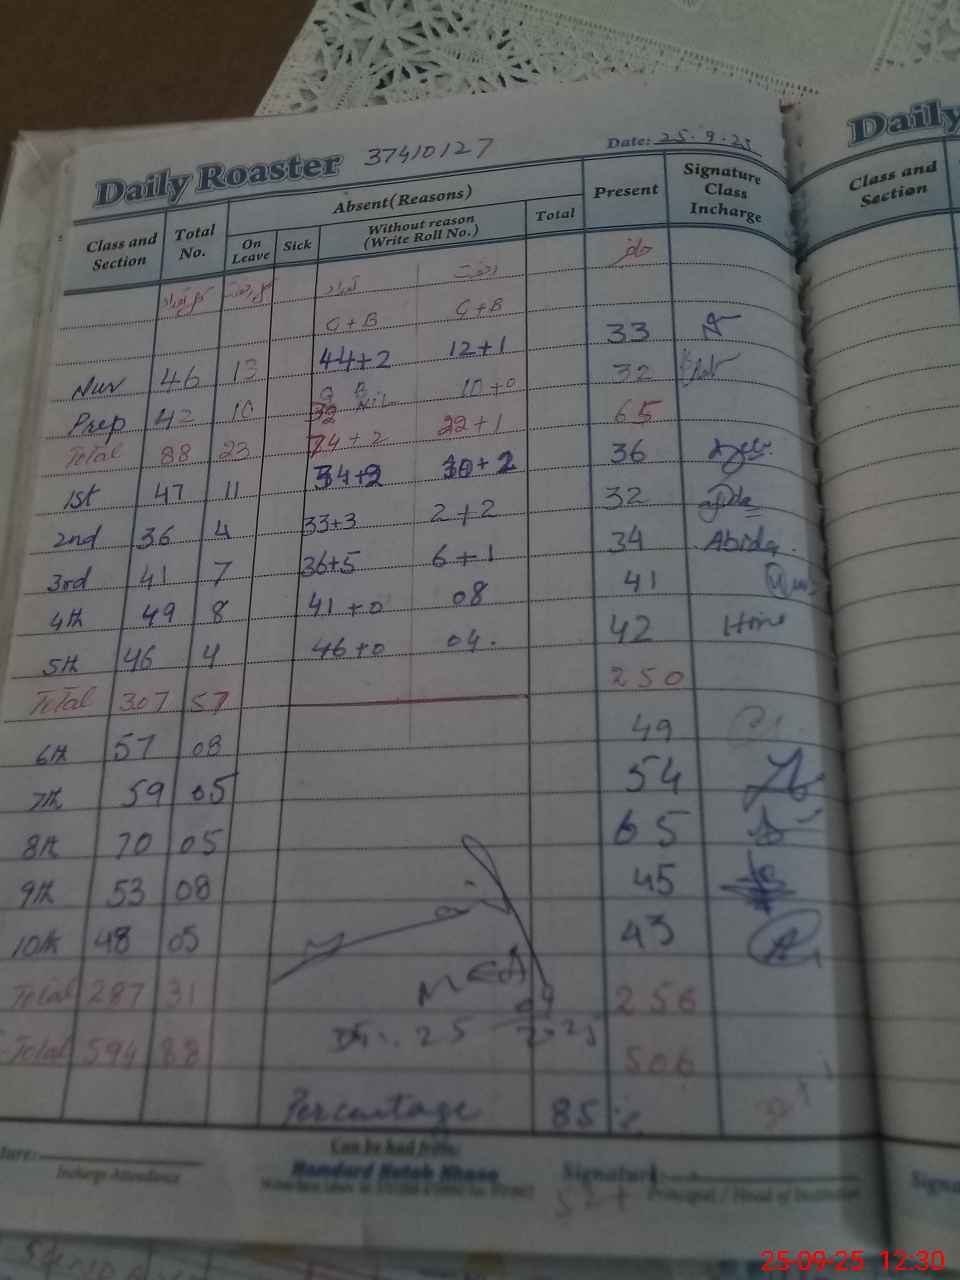 Daily Roaster 37410127 Date: 25.9.25
Class and Section Total No. Absent (Reasons) Present Signature Class Incharge
On Leave Sick Without reason (Write Roll No.) Total
G+B G+B
Nur 46 13 44+2 12+1 33
Prep 42 10 32 Nil 10+0 32
Total 88 23 74+2 22+1 65
1st 47 11 36
2nd 36 4 33+3 2+2 32
3rd 41 7 36+5 6+1 34 Abida.
4th 49 8 41+0 08 41
5th 46 4 46+0 04. 42
Total 307 57 250
6th 57 08 49
7th 59 05 54
8th 70 05 65
9th 53 08 45
10th 48 05 43
Total 287 31 256
MEA
Total 594 88 506
Percentage 85%
Can be had from:
Hamdard Kutab Khana
Incharge Attendence Signature: Principal / Head of Institution
Daily
Class and Section
25-09-25 12:30